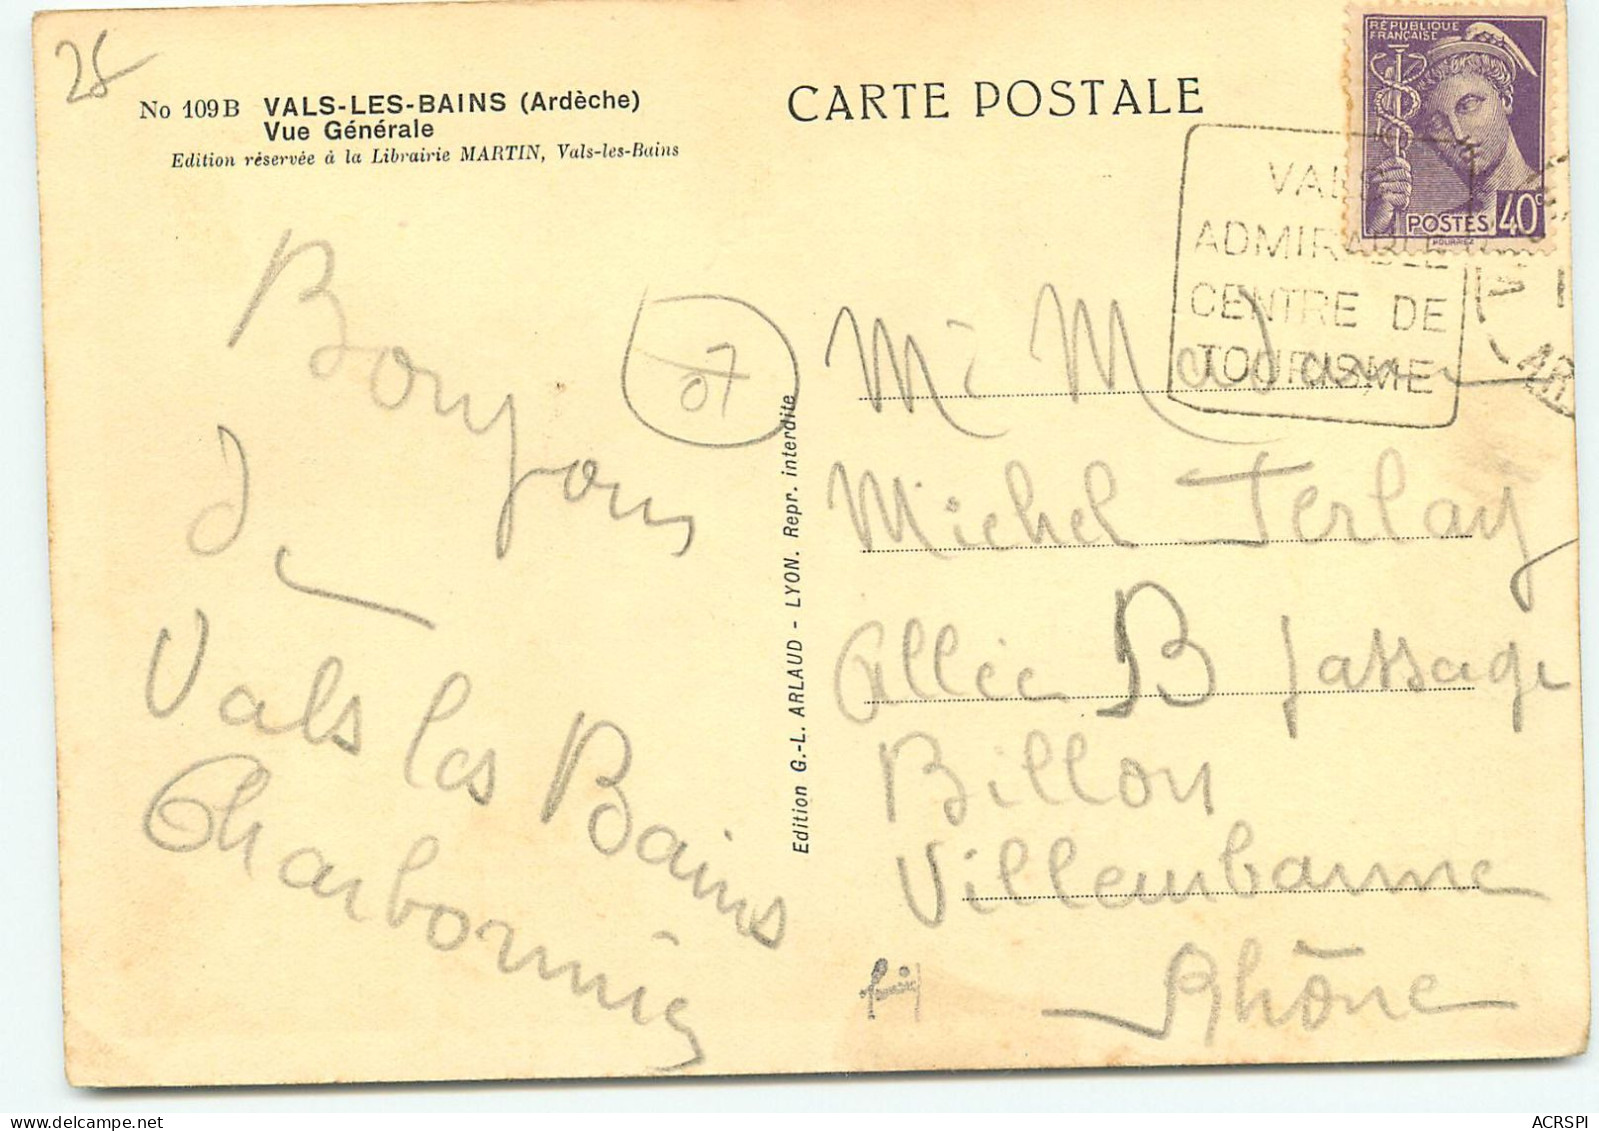 28
No 109 B VALS-LES-BAINS (Ardèche)
Vue Générale
Edition réservée à la Librairie MARTIN, Vals-les-Bains
CARTE POSTALE
RÉPUBLIQUE
FRANÇAISE
POSTES 40c
VALS
ADMIRABLE
CENTRE DE
TOURISME
Bonjour
de
Vals les Bains
Charbonnier
07
Edition G.-L. ARLAUD - LYON. Repr. interdite
Mr Madame
Michel Terlay
Allée B passage
Billon
Villeurbanne
Rhône
ACRSPI